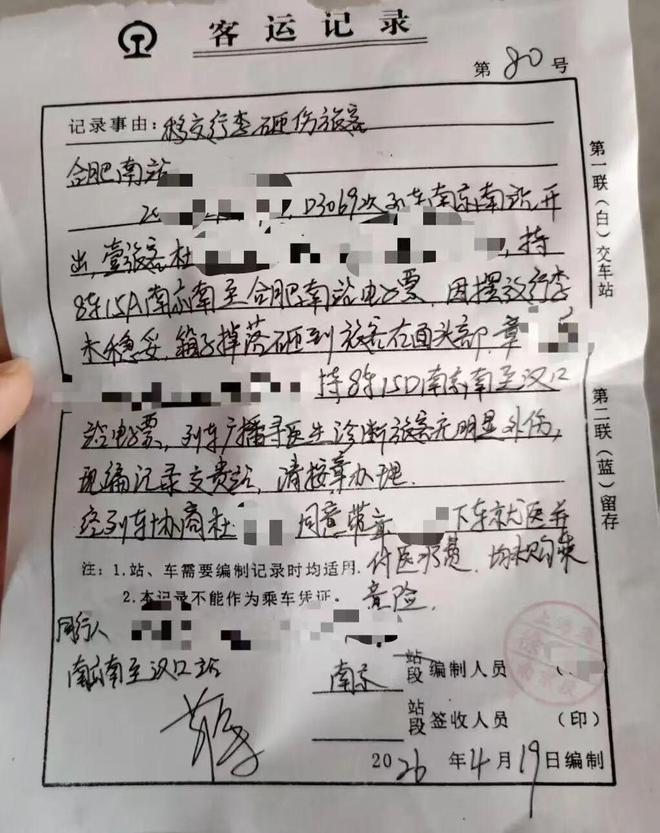 客运记录
第80号
记录事由：移交行李砸伤旅客
合肥南站
20 ，D3069次列车南京南站开
出，壹旅客杜 ，持
8车15A南京南至合肥南站电子票，因摆放行李
未稳妥，箱子掉落砸到旅客右面头部，章
持8车15D南京南至汉口
站电子票，列车广播寻医生诊断旅客无明显外伤，
现编记录交贵站，请按章办理。
经列车协商杜 同意带章 下车就医并
付医药费，均未购乘
意险。
注：1.站、车需要编制记录时均适用。
2.本记录不能作为乘车凭证。
同行人
南京南至汉口站
南京 站段 编制人员
站段 签收人员 （印）
2026年4月19日编制
第一联（白）交车站
第二联（蓝）留存
上海
南京段